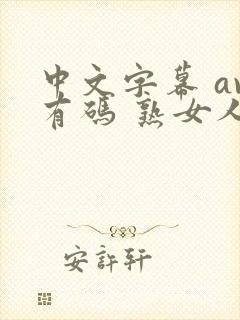 中文字幕 av
有碼 熟女人
安許轩